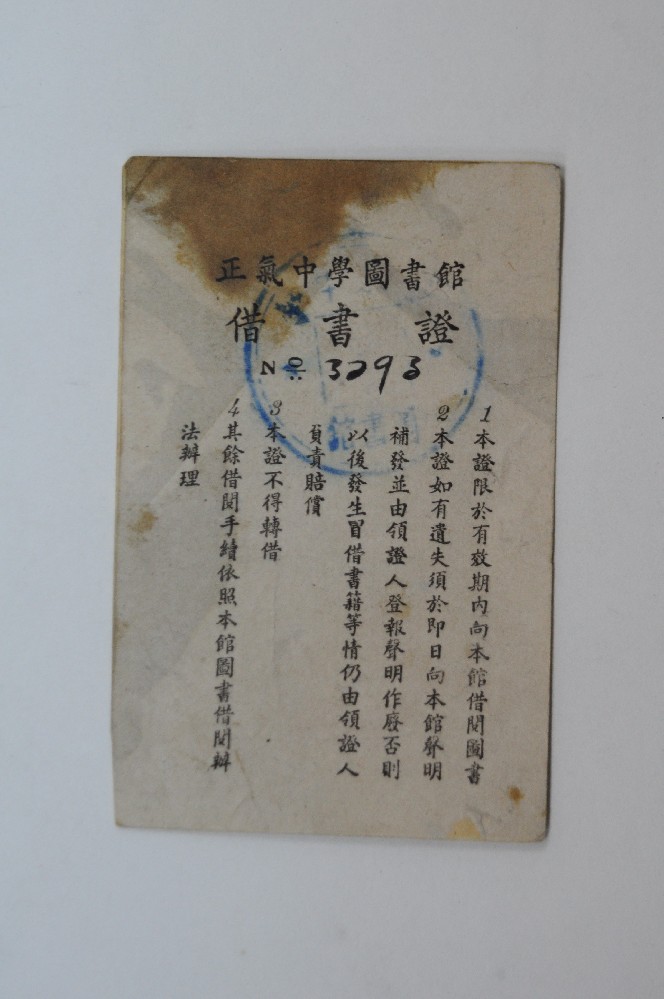 正氣中學圖書館
借書證
No: 3293
1本證限於有效期內向本館借閱圖書
2本證如有遺失須於即日向本館聲明
補發並由領證人登報聲明作廢否則
以後發生冒借書籍等情仍由領證人
負責賠償
3本證不得轉借
4其餘借閱手續依照本館圖書借閱辦
法辦理